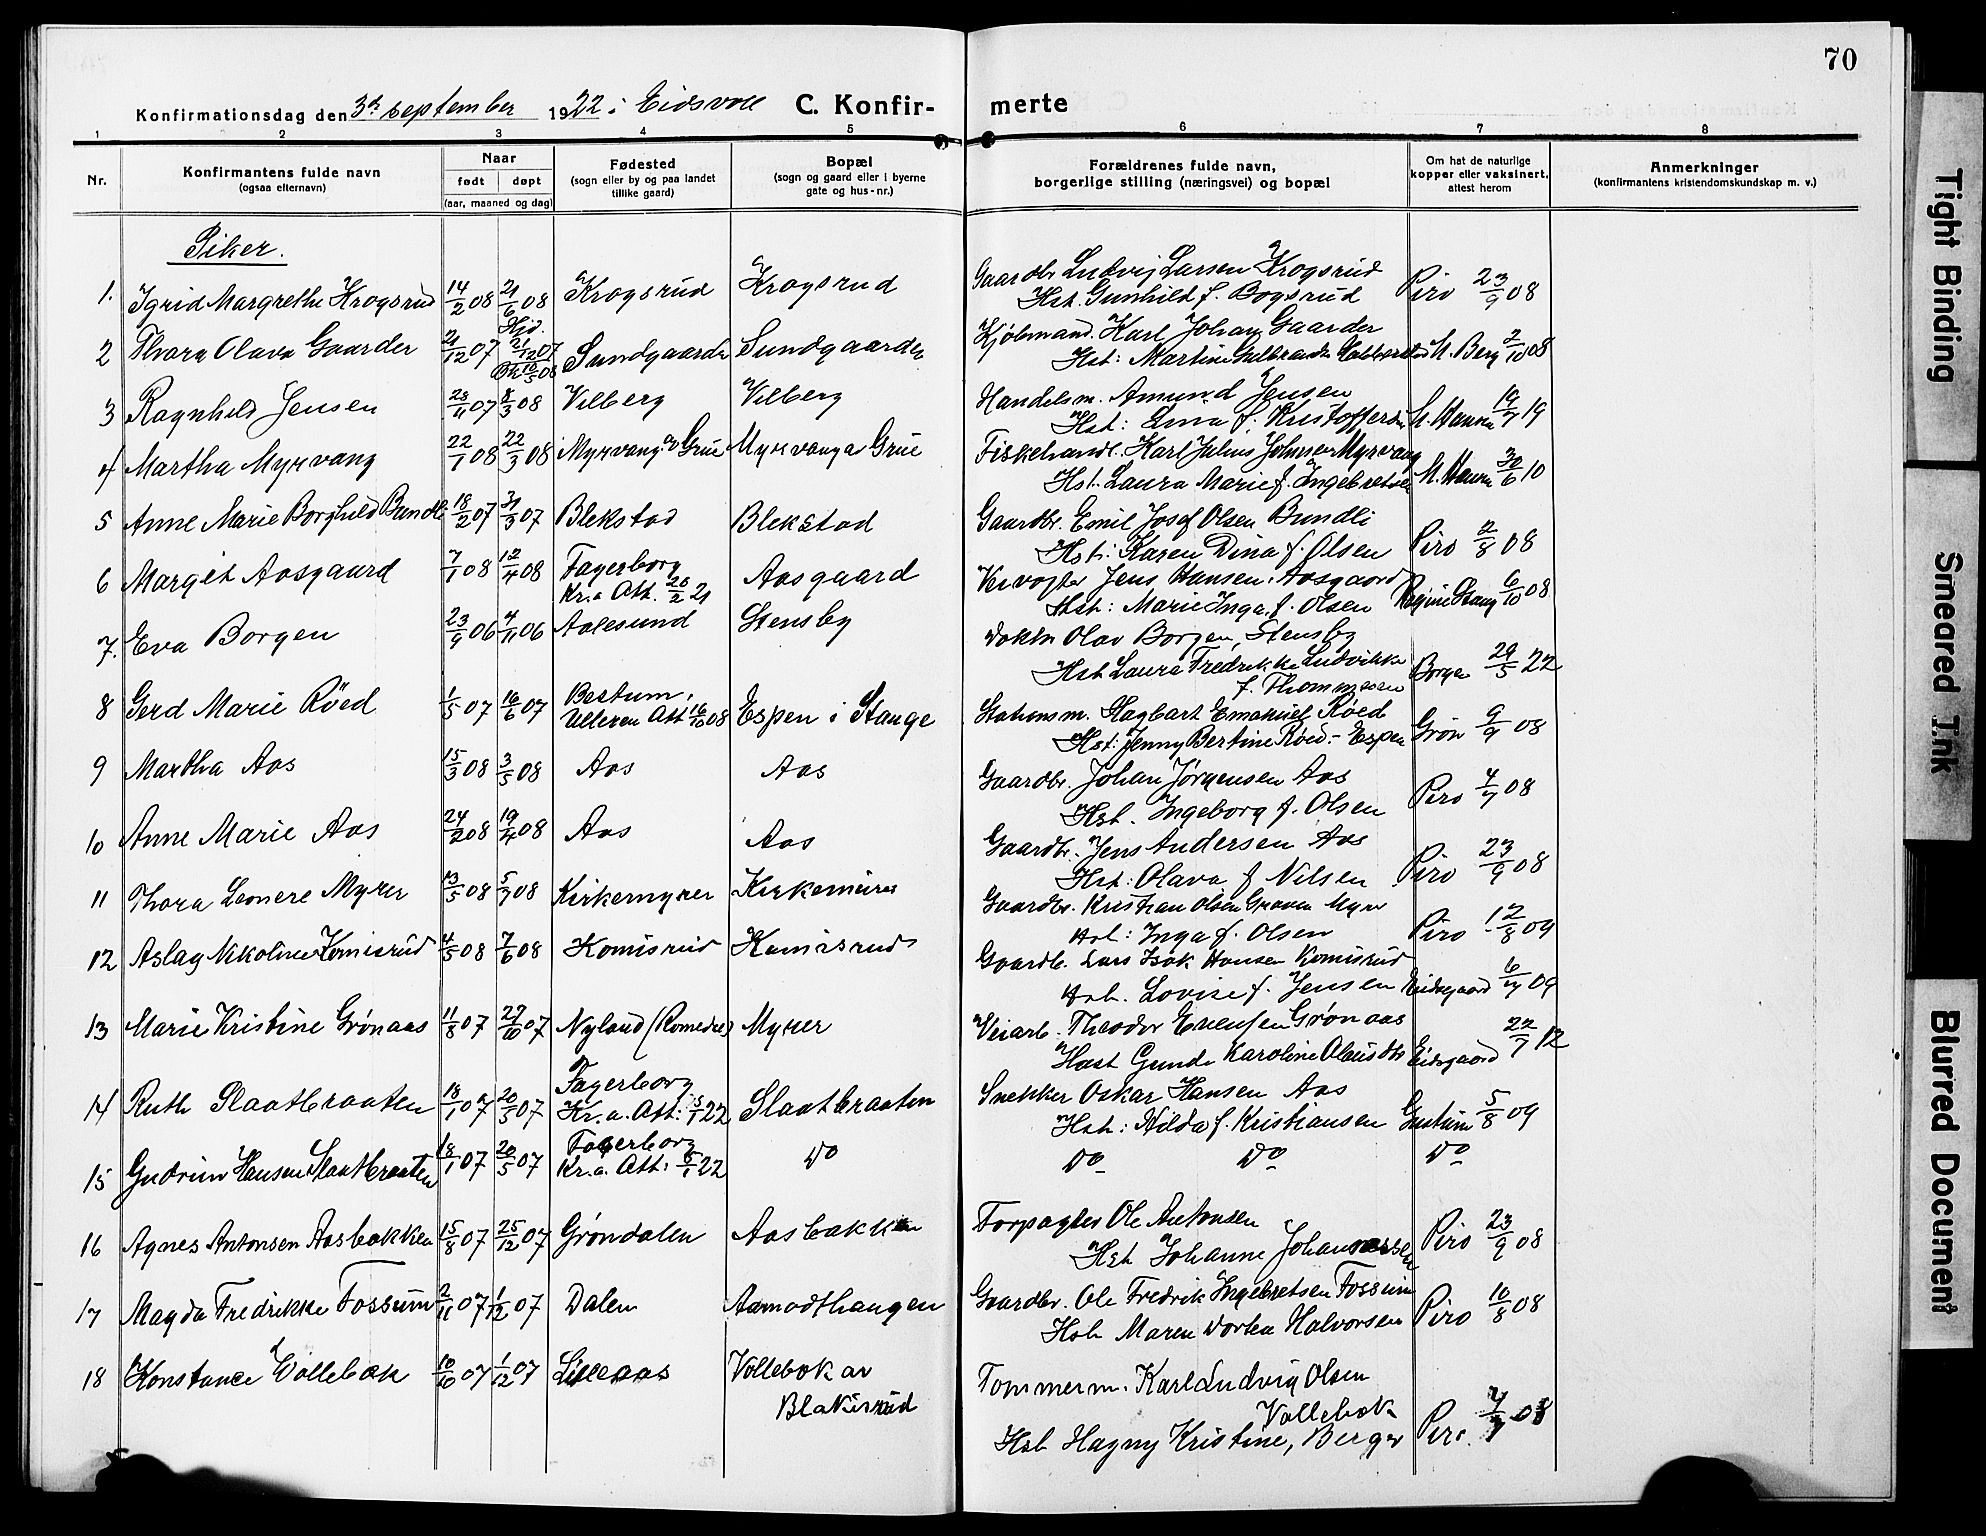 70
Konfirmationsdag den 3dr september 1922 i Eidsvoll C. Konfir- merte
1 2 3 4 5 6 7 8
Nr. Konfirmantens fulde navn (ogsaa efternavn) Naar født døpt (aar, maaned og dag) Fødested (sogn eller by og paa landet tillike gaard) Bopæl (sogn og gaard eller i byerne gate og hus-nr.) Forældrenes fulde navn, borgerlige stilling (næringsvei) og bopæl Om hat de naturlige kopper eller vaksinert, attest herom Anmerkninger (konfirmantens kristendomskundskap m. v.)
Piker.
1. Igrid Margrethe Krogsrud 14/2 08 21/6 08 Krogsrud Krogsrud Gaardbr Ludvig Larsen Krogsrud Piro 23/9 08
Hst. Gunhild f. Bogsrud
2 Thora Olava Gaarder 21/12 07 Hjd. 21/12 07 Sundgaarden Sundgaarden Kjøbmand. Karl Johan Gaarder M. Berg 2/10 08
Hst: Martine
3 Ragnhild Jensen 28/11 07 8/3 08 Vilberg Vilberg Handelsm. Amund Jensen 19/7 19
Hst: Lina f. Kristoffersen
4 Martha Myrvang 22/1 08 22/3 08 Myrvang av Grue Myrvang a Grue Fiskehandl. Karl Julius Johnsen Myrvang 30/6 10
Hst. Laura Marie f. Ingebretsen
5 Anne Marie Borghild Bundli 18/2 07 31/3 07 Blekstad Blekstad Gaardbr. Emil Josef Olsen Bundli Piro 2/8 08
Hst: Karen Dina f. Olsen
6 Margit Aasgaard 7/1 08 12/4 08 Fagerborg Kr.a Att. 20/2 21 Aasgaard Veivogter Jens Hansen Aasgaard 6/10 08
Hst: Marie Inga f. Olsen
7. Eva Borgen 23/9 06 4/11 06 Aalesund Stensby Doktor Olav Borgen, Stensby Borgen 29/5 22
Hst Laura Fredrikke Ludvikke f. Thommesen
8 Gerd Marie Røed 1/5 07 16/6 07 Bestum, Ulleren Att 16/6 08 Espen i Stange Stationsm. Hagbart Emanuel Røed Grøn 9/9 08
Hst: Jenny Bertine Røed - Espen
9 Martha Aas 15/3 08 3/5 08 Aas Aas Gaardbr. Johan Jørgensen Aas Piro 4/7 08
Hst. Ingeborg f. Olsen
10 Anne Marie Aas 24/2 08 19/4 08 Aas Aas Gaardbr. Jens Andersen Aas Piro 23/9 08
Hst: Olava f Nilsen
11 Thora Leonere Myrer 13/5 08 5/7 08 Kirkemyrer Kirkemirer Gaardbr. Kristian Olsen Graven Myrer Piro 12/8 09
Hst: Inga f. Olsen
12 Aslag Nikoline Komisrud 4/5 08 7/6 08 Komisrud Komisrud Gaardb. Lars Isak Hansen Komisrud Eidsgaard 6/7 09
Hst. Lovise f. Jensen
13 Marie Kristine Grønaas 11/8 07 27/10 07 Nyland (Romedal) Myrer Veiarb. Theodor Evensen Grønaas Eidsgaard 22/7 12
Hust Gunda Karoline Olausdtr
14 Ruth Slaatbraaten 18/1 07 20/5 07 Fagerborg Kr.a. Att: 5/1 22 Slaatbraaten Snekker Oskar Hansen Aas 5/8 09
Hst: Hilda f. Kristiansen
15 Gudrun Hansen Slaatbraaten 18/1 07 20/5 07 Fagerborg Kr.a. Att: 5/1 22 Do Do Do Do
16 Agnes Antonsen Aasbakken 15/8 07 25/12 07 Grøndalen Aasbakken Forpagter Ole Antonsen Piro 23/9 08
Hst Johanne Johannessen
17 Magda Fredrikke Fossum 2/11 07 1/12 07 Dalen Aamodthaugen Gaardbr. Ole Fredrik Ingebretsen Fossum Piro 10/8 08
Hst Maren Dortea Halvorsen
18 Konstance Vollebæk 10/10 07 1/12 07 Lilleaas Vollebæk av Blakisrud Tømmerm. Karl Ludvig Olsen Vollebæk Piro. 4/7 08
Hst Hagny Kristine, Berger
Tight Binding
Smeared Ink
Blurred Document